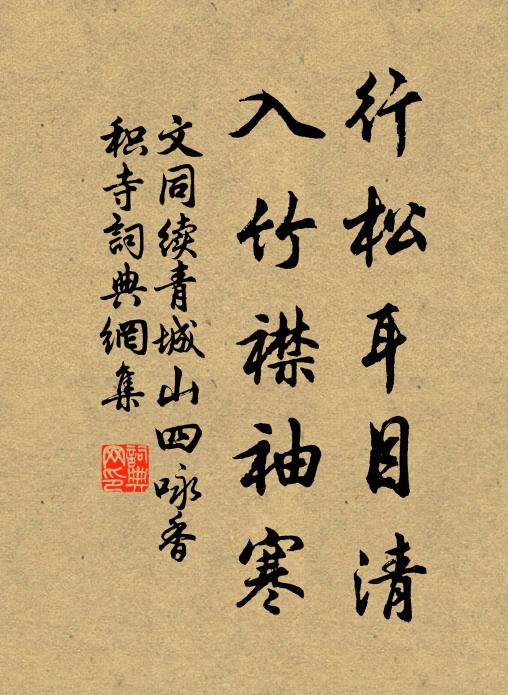 行松耳目清
入竹襟袖寒
文同续青城山四咏香
积寺詞典網集
詞典
网印